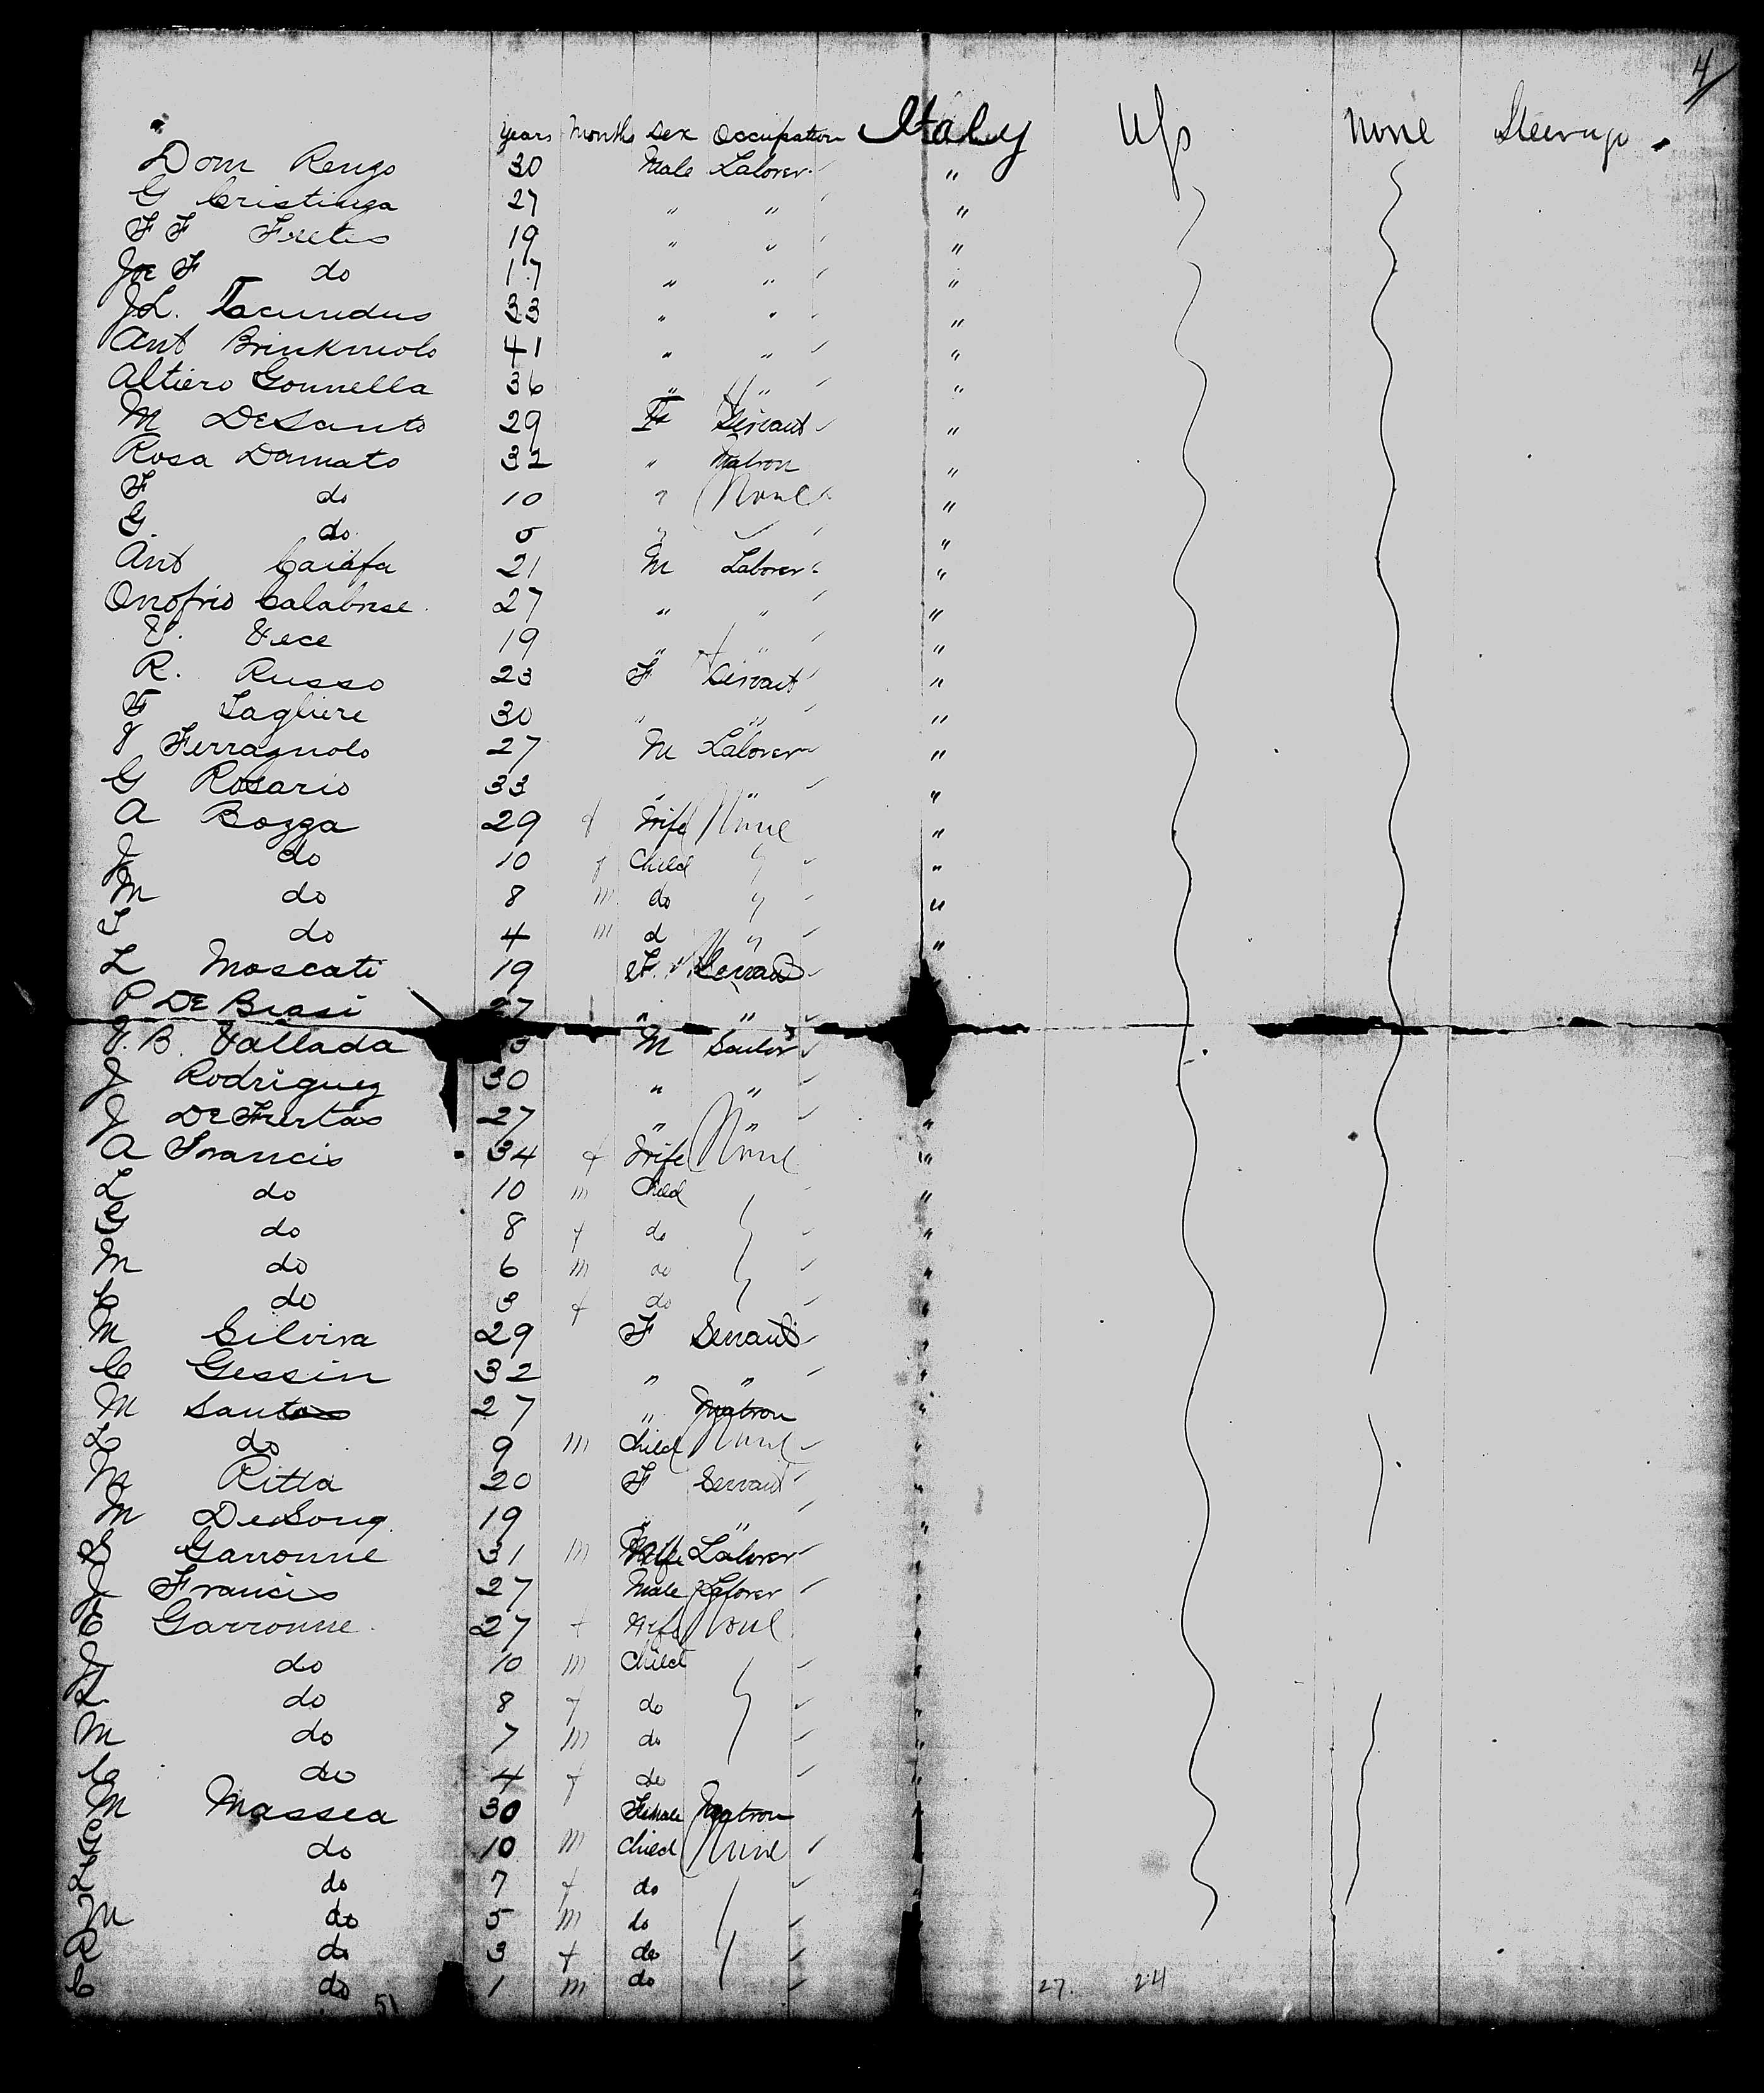 4
years Months Sex Occupation Italy US None Steerage
Dom Rengo 30 Male Laborer "
G Cristinga 27 " " "
F F Fretes 19 " " "
Joe F do 17 " " "
J L. Facundus 33 " " "
Ant Brinkmolo 41 " " "
Altiero Gonnella 36 " " "
M DeSanto 29 F Servant "
Rosa Damato 32 " Matron "
F do 10 " None "
G do 5 " "
Ant Caiafa 21 M Laborer "
Onofrio Calabrese 27 " " "
V. Vece 19 " " "
R. Russo 23 F Servant "
F Tagliere 30 " " "
V Ferragnolo 27 M Laborer "
G Rosario 33 " " "
A Bozza 29 f Wife None "
J do 10 f Child " "
M do 8 m do " "
T do 4 m d " "
L Moscati 19 F. Servant
P De Biasi 27 " "
V. B. Vallada M Sailor
J Rodriguez 30 " "
J DeFreitas 27 " " "
A Francis 34 f Wife None "
L do 10 m Child "
G do 8 f do "
M do 6 m do "
C do 3 f do "
M Silvira 29 F Servant "
C Gessin 32 " " "
M Santos 27 " Matron "
L do 9 m Child None "
M Ritta 20 F Servant "
M DeSong 19 " " "
S Garronne 31 m Laborer
J Francis 27 Male Laborer
E Garronne 27 f Wife None
J do 10 m Child "
L do 8 f do "
M do 7 m do "
C do 4 f do "
M Massea 30 Female Matron "
G do 10 m Child None
L do 7 f do
M do 5 m do
R do 3 f do
C do 1 m do
51 27. 24